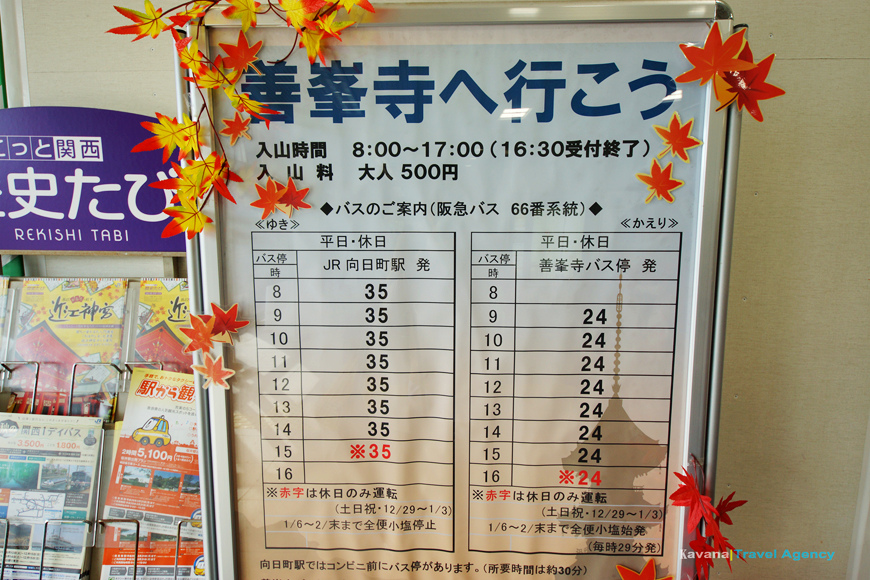 善峯寺へ行こう
入山時間 8:00～17:00(16:30受付終了)
入山料 大人500円
◆バスのご案内(阪急バス 66番系統)◆
≪ゆき≫
平日・休日
バス停 JR向日町駅 発
時
8 35
9 35
10 35
11 35
12 35
13 35
14 35
15 ※35
16
※赤字は休日のみ運転
(土日祝・12/29～1/3)
1/6～2/末まで全便小塩停止
≪かえり≫
平日・休日
バス停 善峯寺バス停 発
時
8
9 24
10 24
11 24
12 24
13 24
14 24
15 24
16 ※24
※赤字は休日のみ運転
(土日祝・12/29～1/3)
1/6～2/末まで全便小塩始発
(毎時29分発)
向日町駅ではコンビニ前にバス停があります。(所要時間は約30分)
こっと関西
史たび
REKISHI TABI
近江神宮
近江神宮
駅から観
2時間 5,100円
関西1デイパス
Kavana|Travel Agency